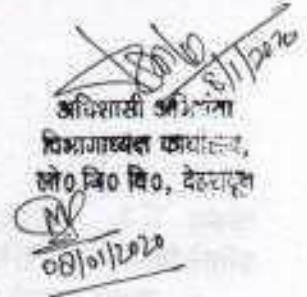 8/1/2020
अधिशासी अभियन्ता
विभागाध्यक्ष कार्यालय,
लो० नि० वि०, देहरादून
08/01/2020